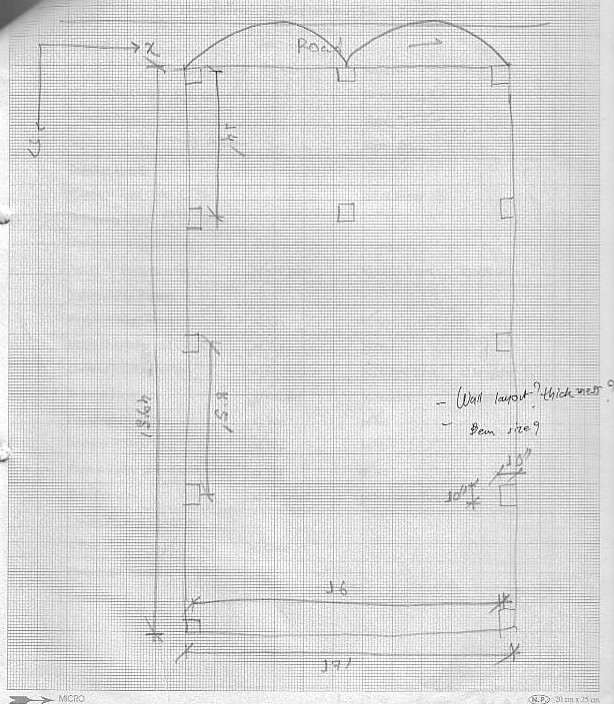 x
Road
y
14'
- Wall layout? thickness?
- Bem size?
10"
10"
16
17'
MICRO
N.P. 20 cm x 25 cm